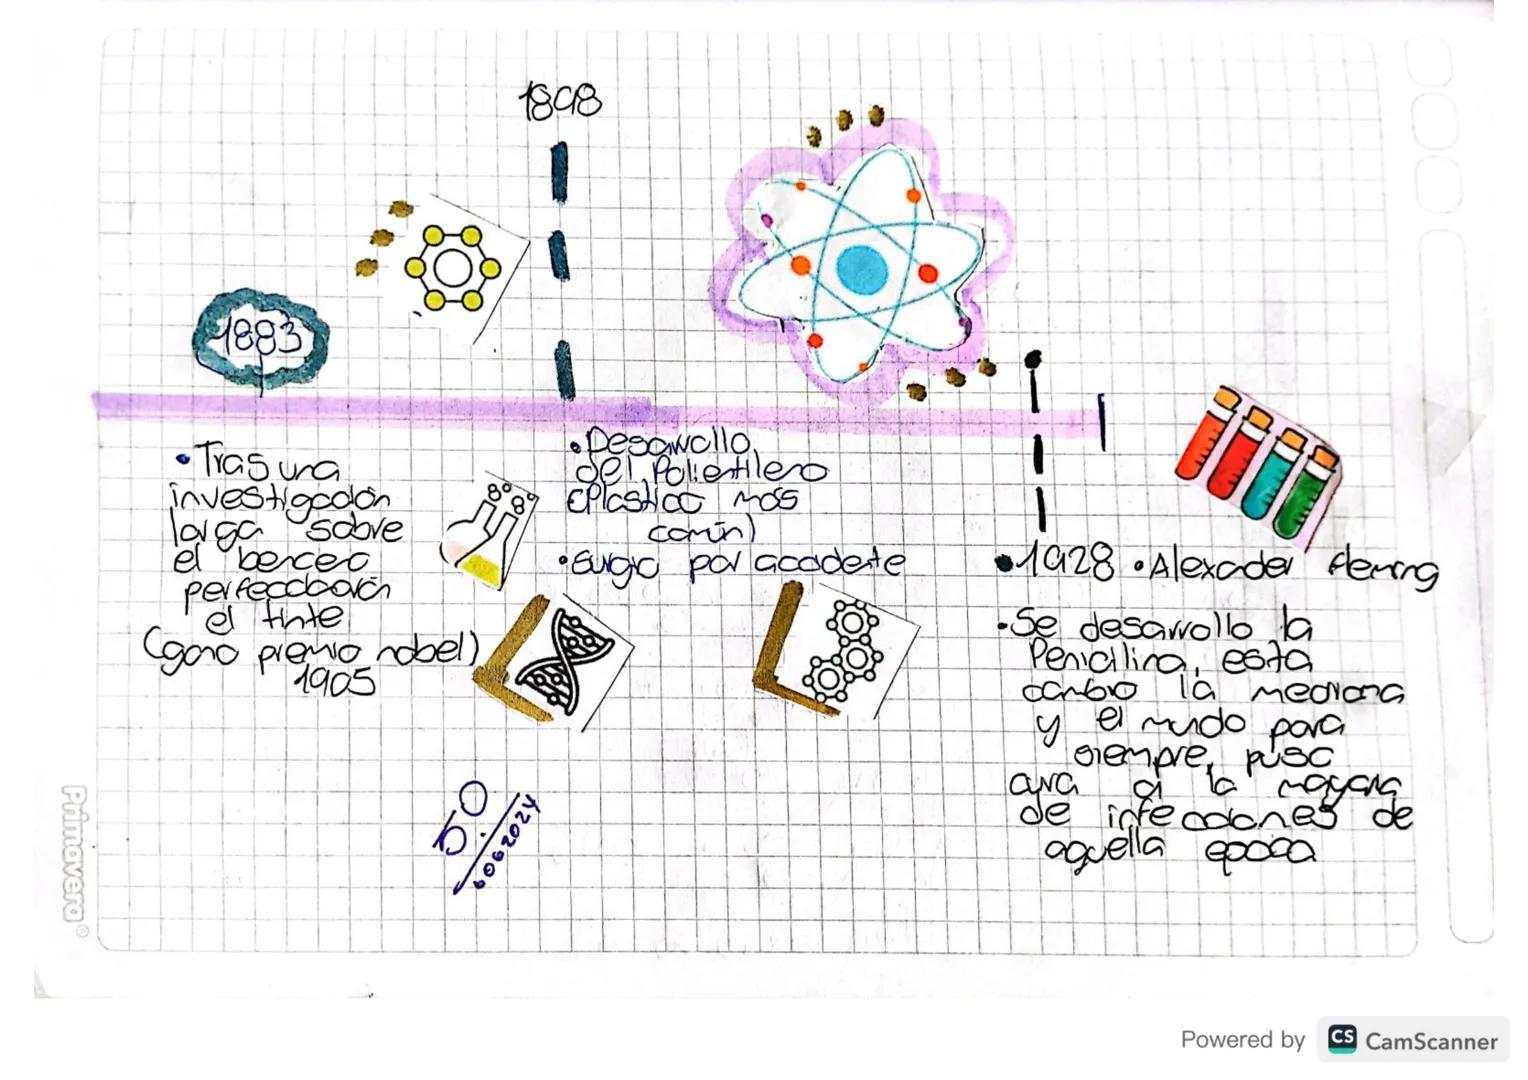 1898
1883
• Tras una
investigación
larga sobre
el benceno
perfeccionan
el tinte
(gano premio nobel)
1905
• Desarrollo
del Polietileno
(Plastico más
común)
• Surgio por accidente
• 1928 • Alexader Fleming
• Se desarrollo la
Penicilina, esta
cambio la medicina
y el mundo para
siempre, puso
cura a la mayoria
de infecciones de
aquella epoca
5.0
6062024
Primavera®
Powered by CS CamScanner